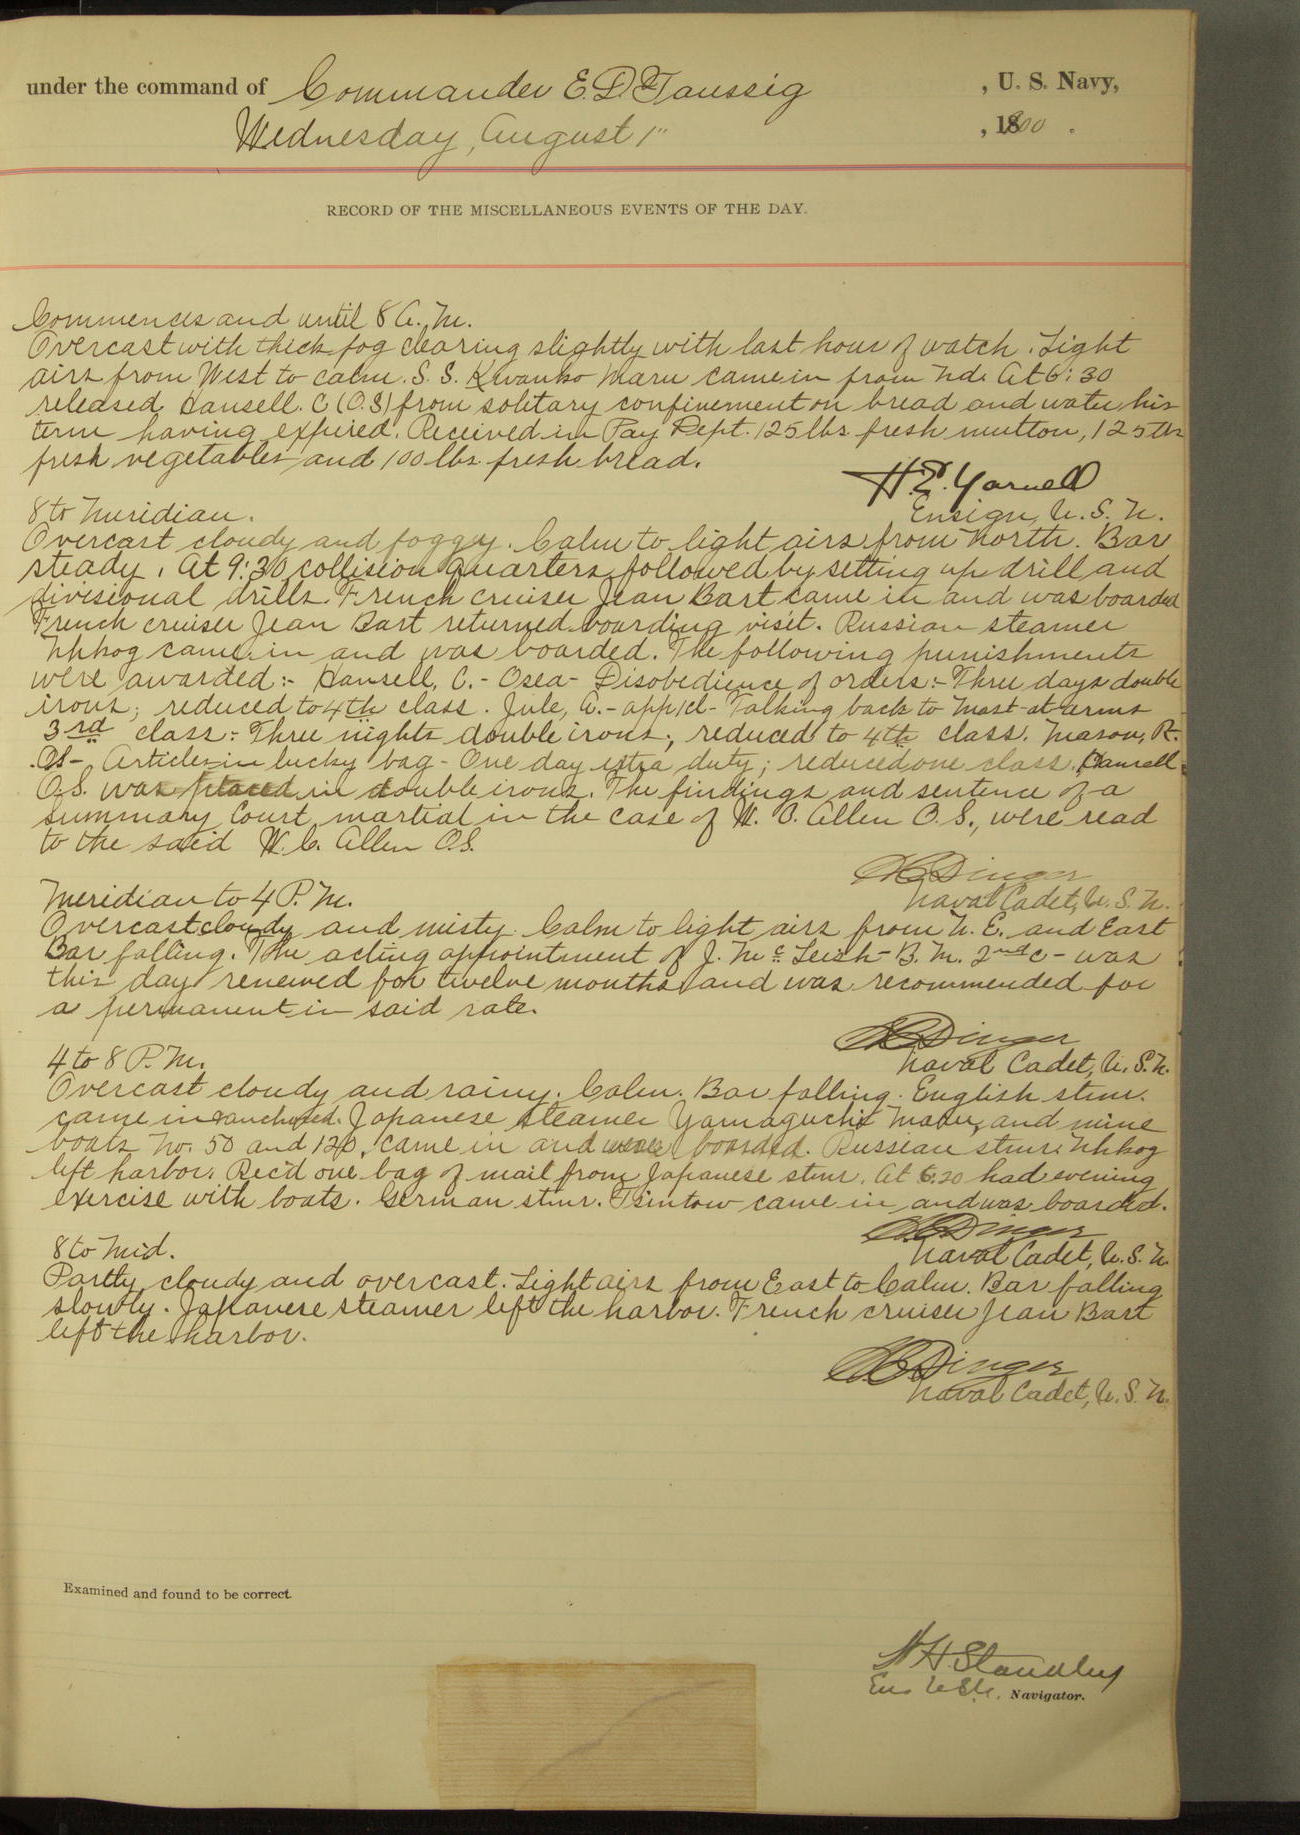 under the command of Commander E. D. Taussig , U. S. Navy,
Wednesday, August 1" , 1900 .
RECORD OF THE MISCELLANEOUS EVENTS OF THE DAY.
Commences and until 8 A. M.
Overcast with thick fog clearing slightly with last hour of watch. Light
airs from West to calm. S. S. Kwanko Maru came in from Nd. At 6:30
released Hansell. C (O.S) from solitary confinement on bread and water his
term having expired. Received in Pay Dept. 125 lbs fresh mutton, 125 lbs
fresh vegetables and 100 lbs fresh bread.
H. E. Yarnell
Ensign, U. S. N.
8 to Meridian.
Overcast cloudy and foggy. Calm to light airs from North. Bar
steady. At 9:30 collision quarters, followed by setting up drill and
divisional drills. French cruiser Jean Bart came in and was boarded
French cruiser Jean Bart returned boarding visit. Russian steamer
came in and was boarded. The following punishments
were awarded:- Hansell, C. - Osea - Disobedience of orders:- Three days double
irons; reduced to 4th class. Jule, A. - app1cl - Talking back to Mast-at-arms
3rd class:- Three nights double irons; reduced to 4th class. Mason, R.
OS - Articles in lucky bag - One day extra duty; reduced one class. Hansell
O.S. was placed in double irons. The findings and sentence of a
Summary Court martial in the case of W. C. Allen O.S., were read
to the said W. C. Allen O.S.
Dinger
Naval Cadet, U. S. N.
Meridian to 4 P. M.
Overcast cloudy and misty. Calm to light airs from N. E. and East
Bar falling. The acting appointment of J. Mc Leish - B. M. 2nd c - was
this day renewed for twelve months and was recommended for
a permanent in said rate.
Dinger
Naval Cadet, U. S. N.
4 to 8 P. M.
Overcast cloudy and rainy. Calm. Bar falling. English stmr.
came in & anchored. Japanese steamer Yamaguchi Maru, and mine
boats No. 50 and 120, came in and were boarded. Russian stmr.
left harbor. Rec'd one bag of mail from Japanese stmr. At 6:20 had evening
exercise with boats. German stmr. Tsintow came in and was boarded.
Dinger
Naval Cadet, U. S. N.
8 to Mid.
Partly cloudy and overcast. Light airs from East to Calm. Bar falling
slowly. Japanese steamer left the harbor. French cruiser Jean Bart
left the harbor.
Dinger
Naval Cadet, U. S. N.
Examined and found to be correct.
W H Standley
Ens U.S.N., Navigator.